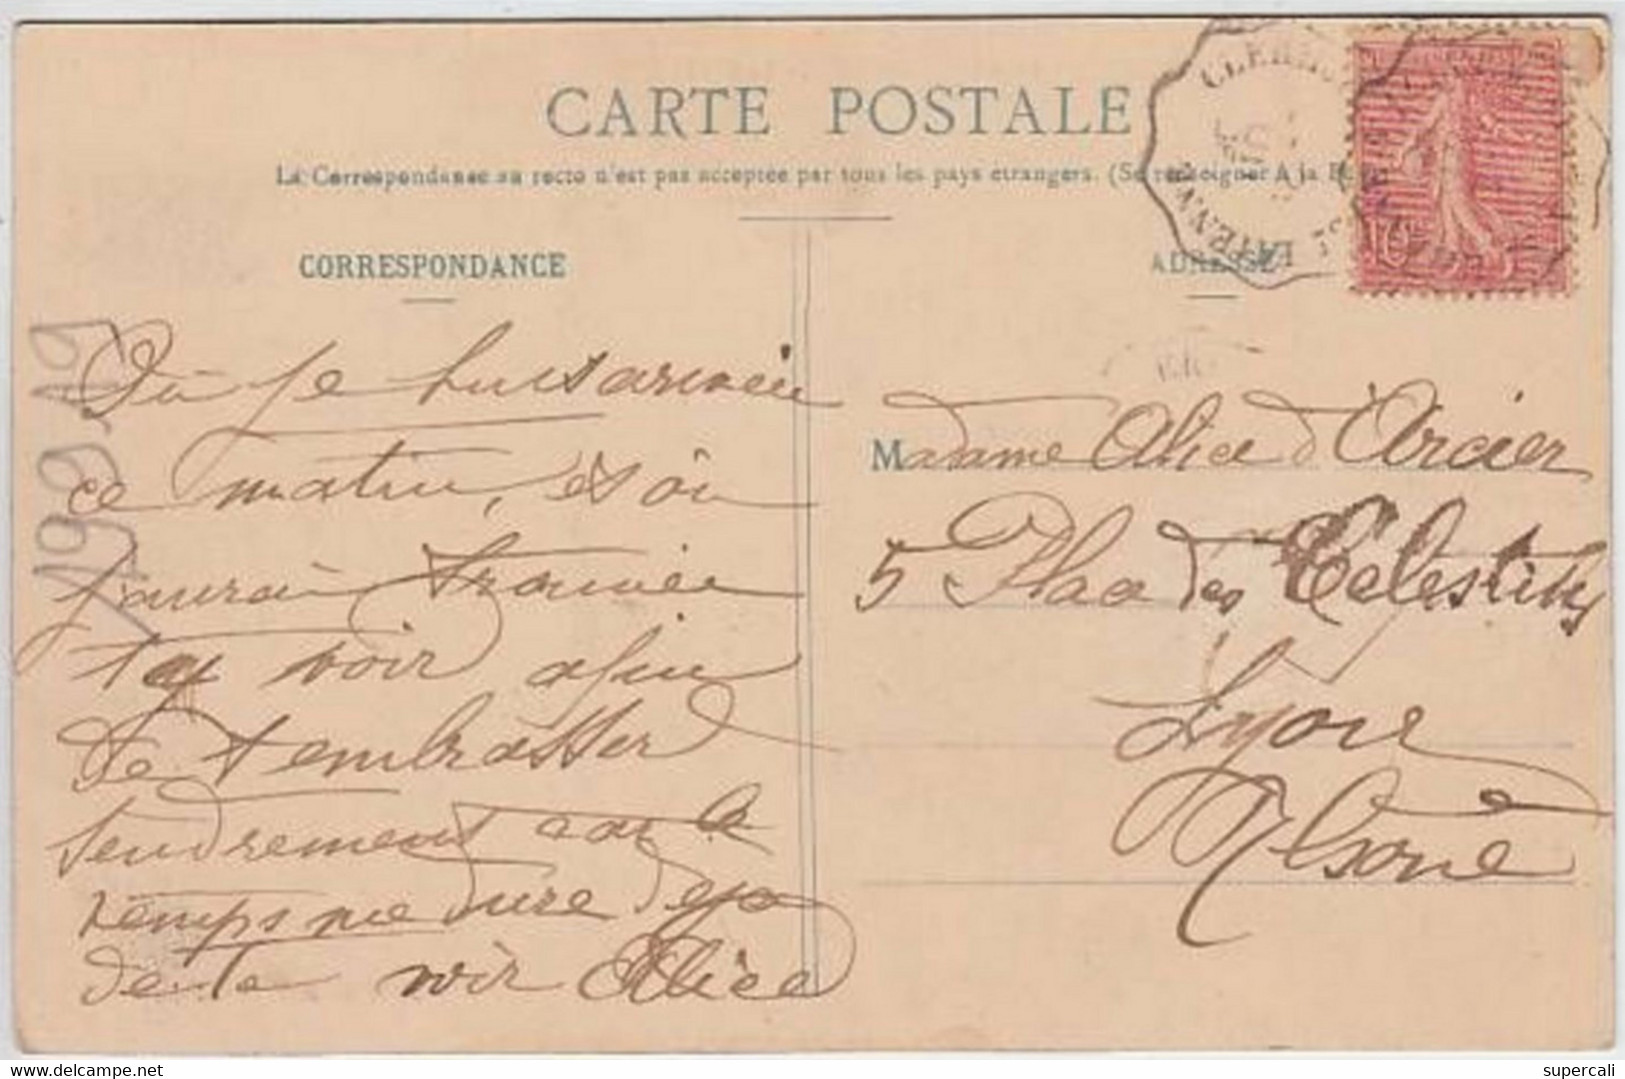 CARTE POSTALE
La Correspondance au recto n'est pas acceptée par tous les pays étrangers. (Se renseigner à la
CORRESPONDANCE
ADRESSE
Où je suis
ce matin, et où
voir afin
de t'embrasser
tendrement car le
temps me dure deja
de te voir Alice
Madame Alice d'Arcier
5 Place des Célestins
Lyon
Rhône
delcampe.net
supercali